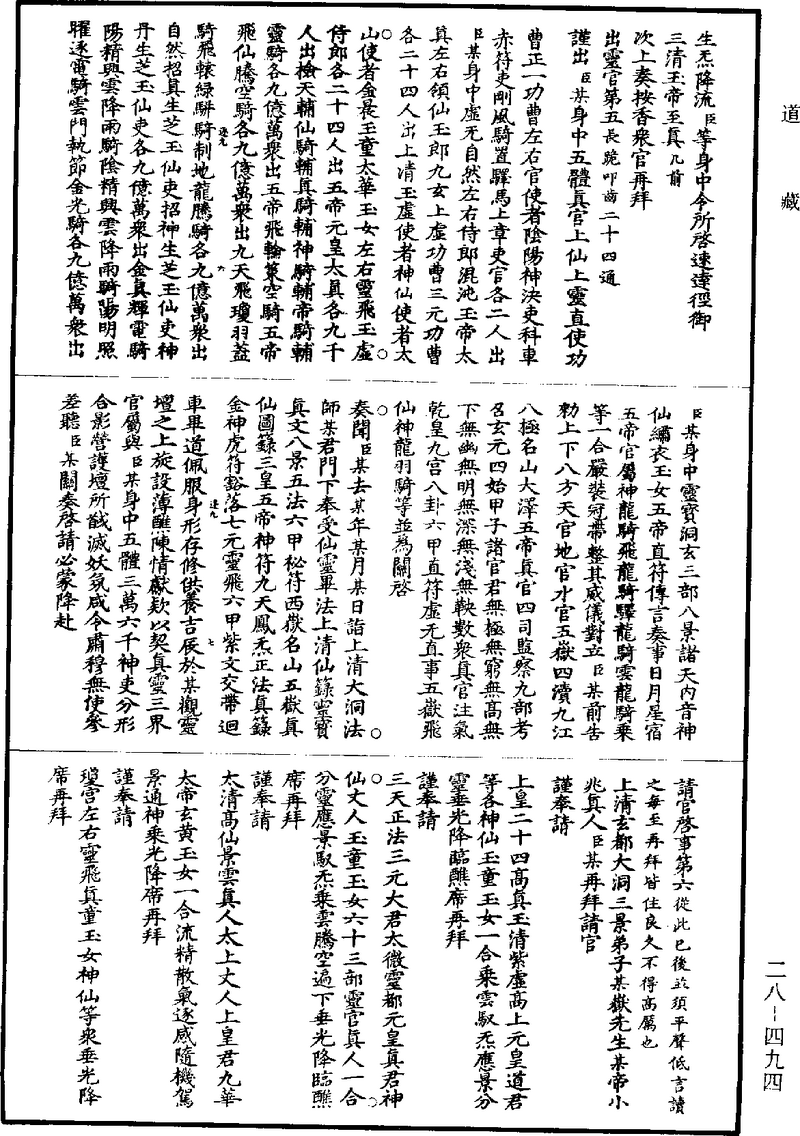 道藏
生炁降流臣等身中令所啓速達徑御
三清玉帝至真几前
次上奏按香衆官再拜
出靈官第五長跪叩齒二十四通
謹出臣某身中五體真官上仙上靈直使功
曹正一功曹左右官使者陰陽神決吏科車
赤符吏剛風騎置驛馬上章吏官各二人出
臣某身中虛无自然左右侍郎混沌玉帝太
真左右領仙玉郎九玄上虛功曹三元功曹
各二十四人出上清玉虛使者神仙使者太
山使者金晨玉童太華玉女左右靈飛玉虛
侍郎各二十四人出五帝元皇太真各九千
人出檢天輔仙騎輔真騎輔神騎輔帝騎輔
靈騎各九億萬衆出五帝飛輪策空騎五帝
飛仙騰空騎各九億萬衆出九天飛瓊羽蓋
騎飛轅綠軿騎制地龍騰騎各九億萬衆出
自然招真生芝玉仙吏招神生芝玉仙吏神
丹生芝玉仙吏各九億萬衆出金真輝電騎
陽精興雲降雨騎陰精興雲降雨騎陽明照
曜逐電騎雲門執節金光騎各九億萬衆出
臣某身中靈寶洞玄三部八景諸天內音神
仙繡衣玉女五帝直符傳言奏事日月星宿
五帝官屬神龍騎飛龍騎驛龍騎雲龍騎乗
等一合嚴裝冠帶整其威儀對立臣某前告
勑上下八方天官地官水官五嶽四瀆九江
八極名山大澤五帝真官四司監察九部考
召玄元四始甲子諸官君無極無窮無高無
下無幽無明無深無淺無鞅數衆真官注氣
乾皇九宮八卦六甲直符虛无直事五嶽飛
仙神龍羽騎等並為關啓
奏聞臣某去某年某月某日詣上清大洞法
師某君門下奉受仙靈畢法上清仙籙靈寶
真文八景五法六甲秘符西嶽名山五嶽真
仙圖籙三皇五帝神符九天鳳炁正法真籙
金神虎符豁落七元靈飛六甲紫文交帶迴
車畢道佩服身形存修供養吉辰於某觀靈
壇之上旋設薄醮陳情獻款以契真靈三界
官屬與臣某身中五體三萬六千神吏分形
合影營護壇所馘滅妖氛咸令肅穆無使參
差聽臣某關奏啓請必蒙降赴
請官啓事第六從此已後並須平聲低言讀
之每至再拜皆住良久不得高厲也
上清玄都大洞三景弟子某嶽先生某帝小
兆真人臣某再拜請官
謹奉請
上皇二十四高真玉清紫虛高上元皇道君
等各神仙玉童玉女一合乘雲馭炁應景分
靈垂光降臨醮席再拜
謹奉請
三天正法三元大君太微靈都元皇真君神
仙丈人玉童玉女六十三部靈官真人一合
分靈應景馭炁乘雲騰空遍下垂光降臨醮
席再拜
謹奉請
太清高仙景雲真人太上丈人上皇君九華
太帝玄黃玉女一合流精散氣逐感隨機駕
景通神乘光降席再拜
謹奉請
瓊宮左右靈飛真童玉女神仙等衆垂光降
席再拜
二八-四九四